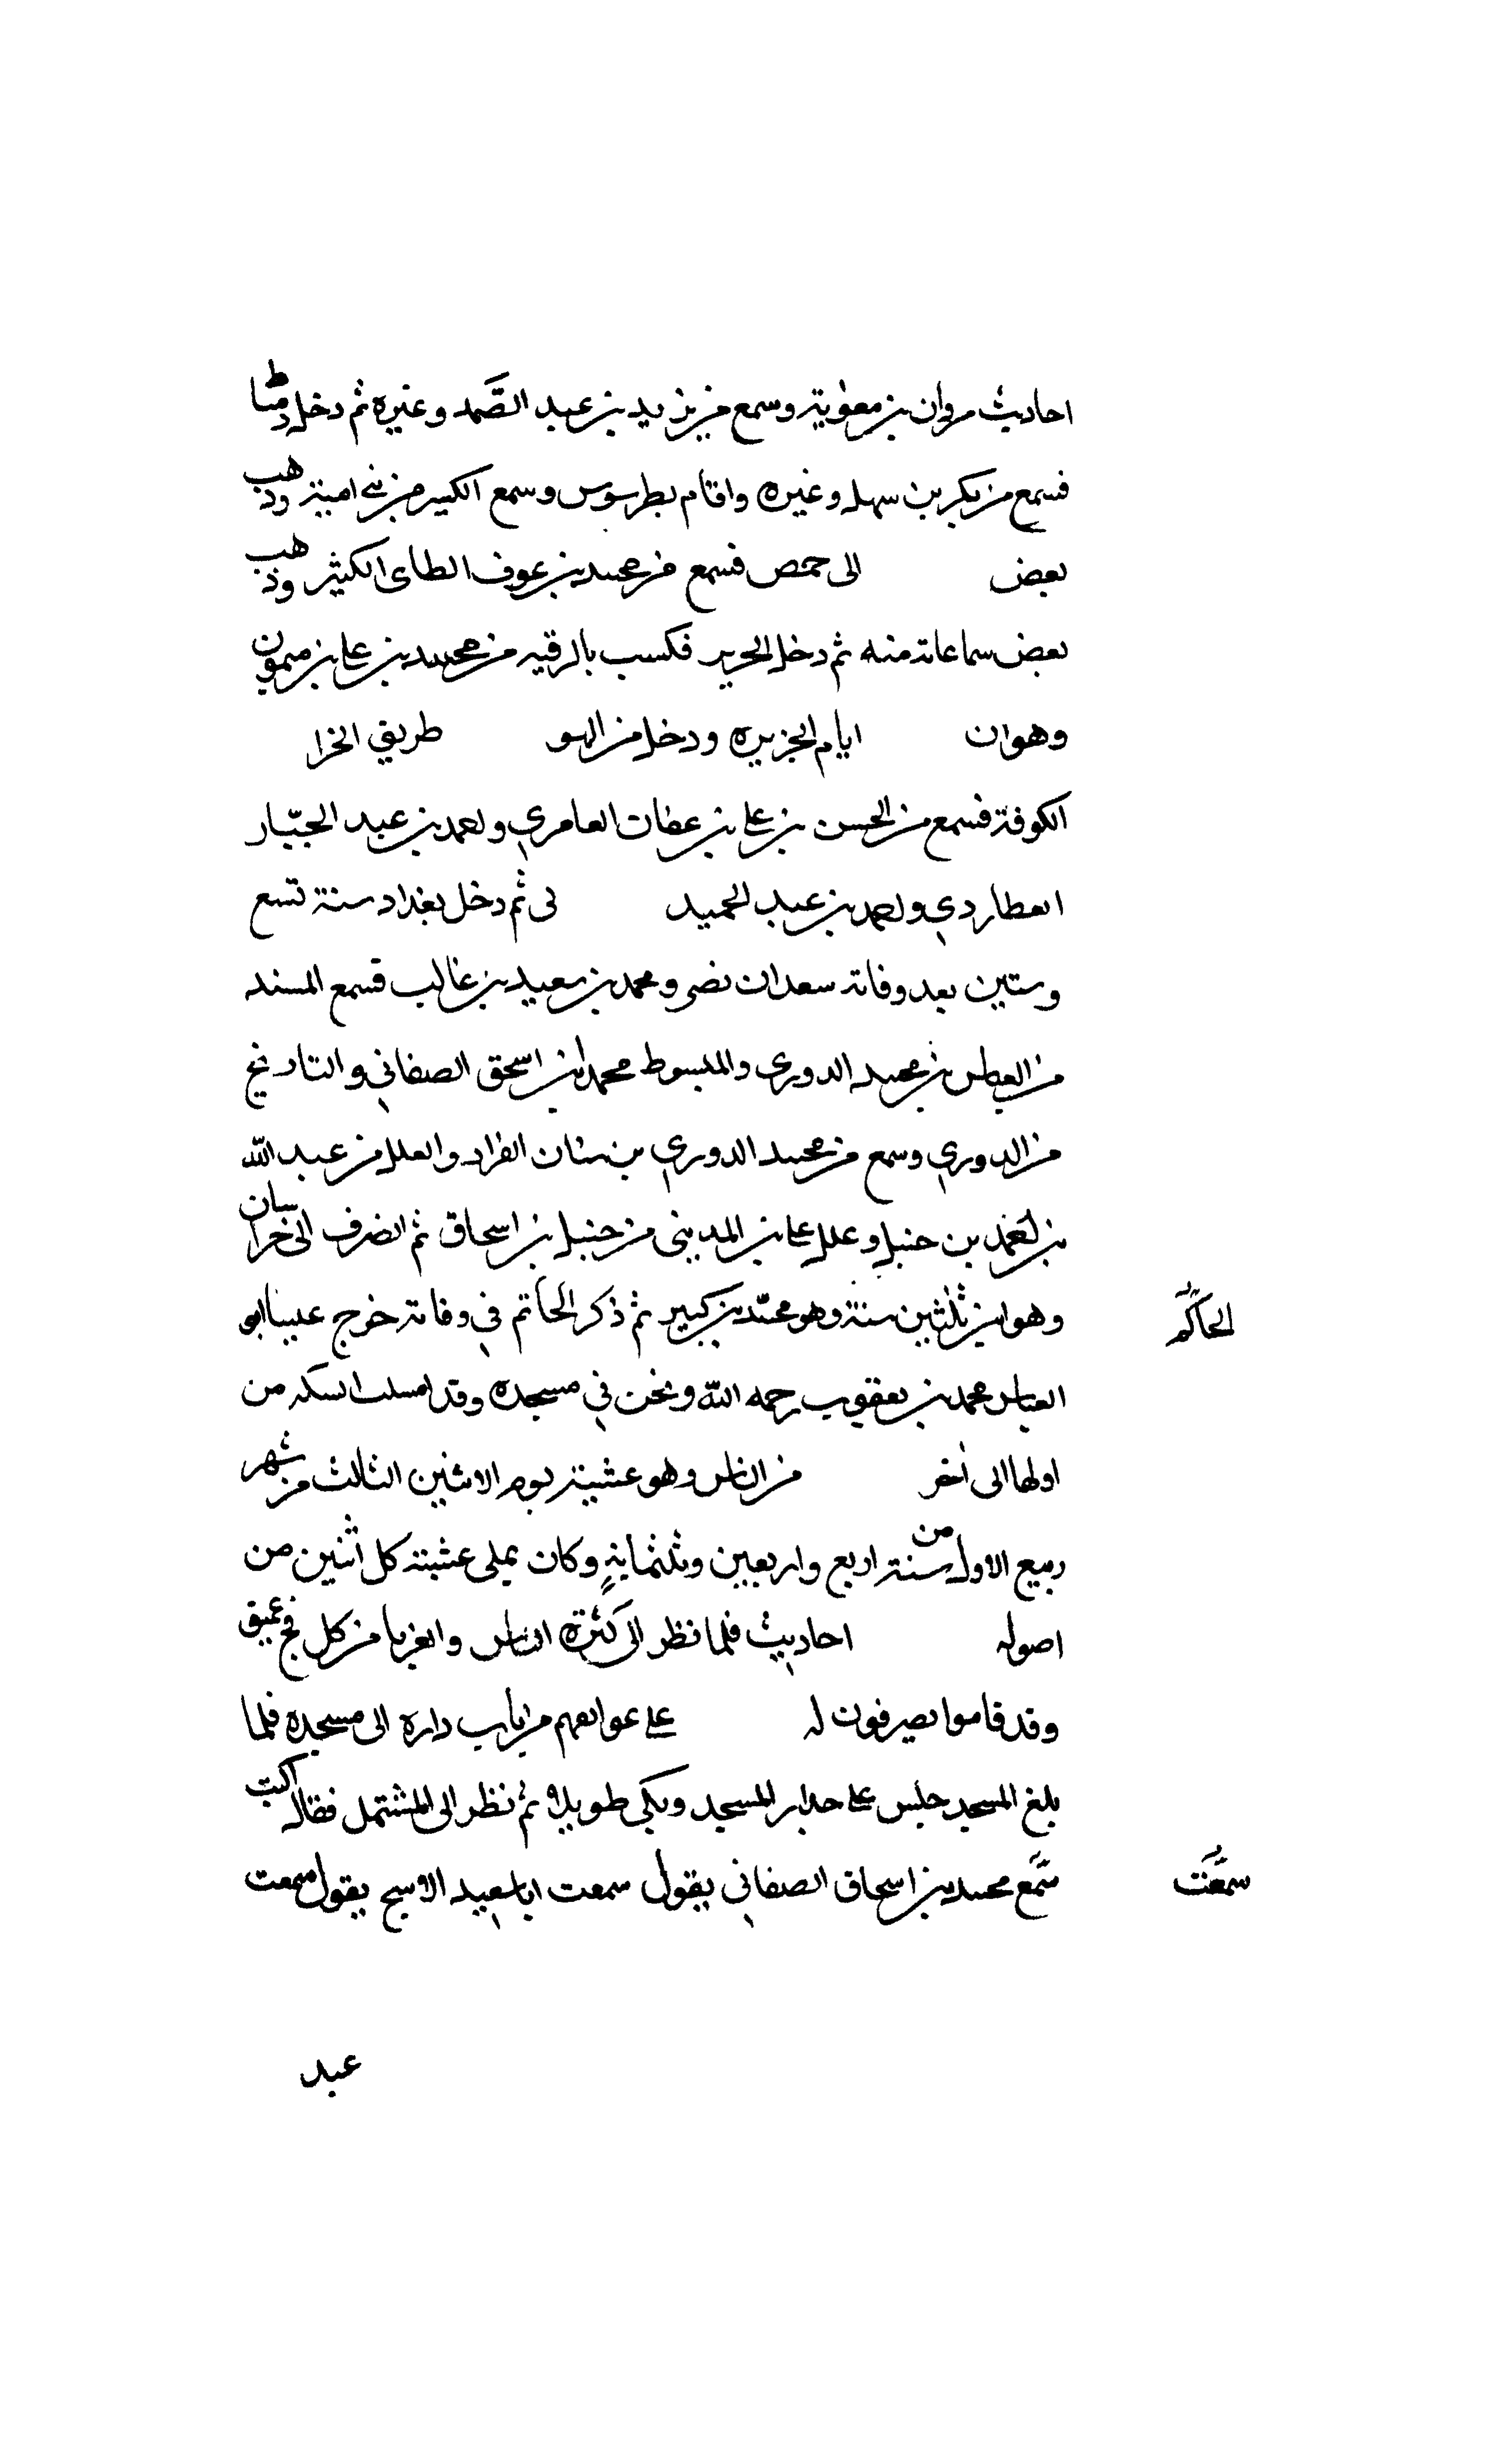 احاديث مروان بن معوية وسمع من يزيد بن عبد الصَّمد وغيره ثم دخل دمياط
فسمع من بكر بن سهل وغيره واقام بطرسوس وسمع الكبير من بني امية وذهب
بعض الى حمص فسمع من محمد بن عوف الطاى الكثير وذهب
بعض سماعاته منه ثم دخل الجزير فكسب بالرقيه من محمد بن علي بن ميمون
وهوان ايام الجزيره ودخل من المو طريق الخرا
الكوفة فسمع من الحسن بن علي بن عفان العامري واحمد بن عبد الجبّار
العطاردي واحمد بن عبد الحميد ثى ثم دخل بغداد سنة تسع
وستين بعد وفاته سعدان نصر ومحمد بن سعيد بن غالب فسمع المسند
من العباس بن محمد الدوري والمبسوط محمد ابن اسحق الصغاني والتاريخ
من الدوري وسمع من محمد الدوري بن سنان القزاد والعلل من عبد الله
بن احمد بن حنبل وعلل علي بن المديني من حنبل بن اسحاق ثم انصرف الى خراسان
وهو ابن ثلثين سنة وهو محدّث كبير ثم ذكر الحاتم في وفاته خرج علينا ابو
الحاكم
العباس محمد بن يعقوب رحمه الله ونحن في مسجده وقد امسلت السكه من
اولها الى اخر من الناس وهو عشية يوم الاثنين الثالث من شهر
ربيع الاول من سنة اربع واربعين وثلثماية وكان يملى عشية كل اثنين من
اصوله احاديث فلما نظر الى كثرة الناس والغربا من كل فج عميق
وقد قاموا يصرفون له على عواتقهم من باب داره الى مسجده فلما
بلغ المسجد جلس على جدار المسجد وبكى طويلا ثم نظر الى المشتمل فقال اكتب
سمّع محمد بن اسحاق الصغاني يقول سمعت ابا سعيد الاسبح يقول سمعت
سمعت
عبد